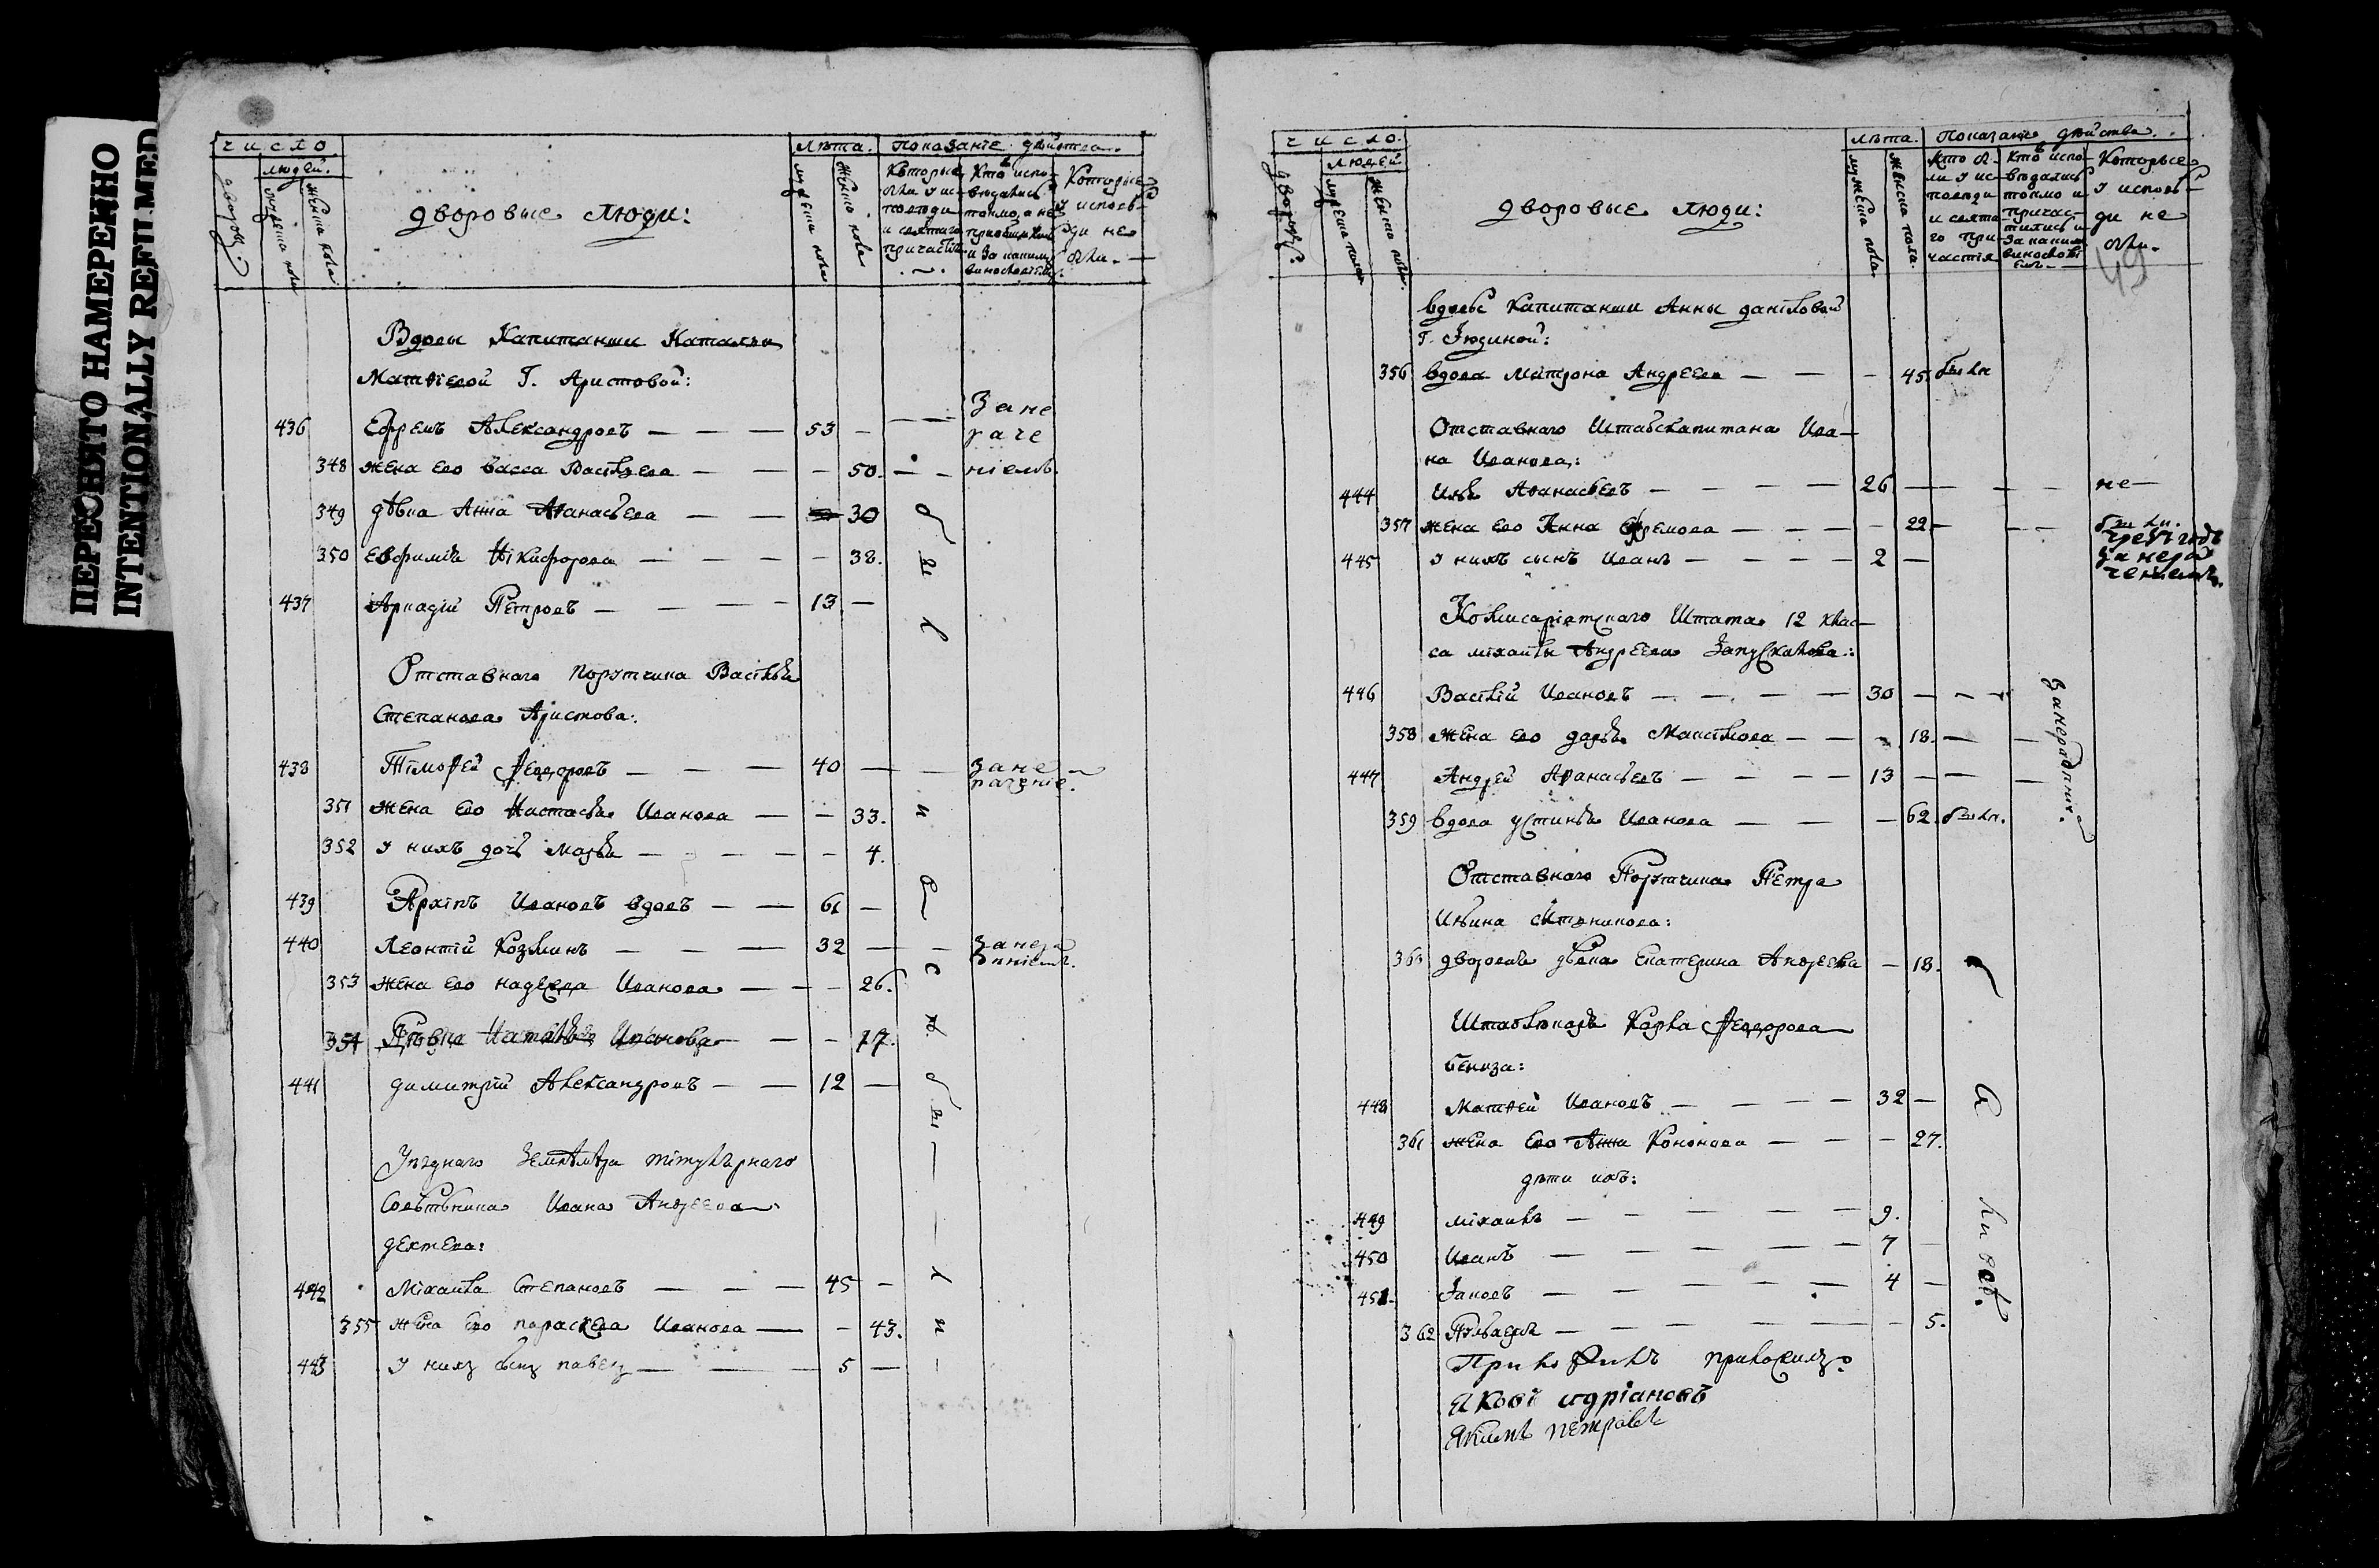 ПЕРЕСНЯТО НАМЕРЕННО
INTENTIONALLY REFILMED
число
людей.
дворовъ.
мужеска пола
женска пола
дворовые люди:
лѣта.
мужеска пола
женска пола
Показанїе дѣйства.
Которые
были у ис-
повѣди
и святаго
причастїя
Кто испо-
вѣдались
токмо, а не
и за какимъ
Которые
у исповѣ-
ди не
были.
Вдовы Капитанши Натальи
Матѳѣевой Г. Аристовой:
436 Ефремъ Александровъ — — — 53 — — За не
раче
348 жена его васса Васильева — — — 50. — — нїемъ.
349 дѣвка Анна Аѳанасьева — — 30
350 Евфимїя Никифорова — — — 38.
437 Аркадїй Петровъ — — — — 13 —
Отставнаго порутчика Василья
Степанова Аристова:
438 Тїмоѳей Ѳеодоровъ — — — 40 — — за не
раченїе.
351 жена его Настасья Иванова — — 33.
352 у нихъ дочь марья — — — — 4.
439 Архїпъ Ивановъ вдовъ — — 61 —
440 Леонтїй Козминъ — — — 32 — —
353 жена его надежда Иванова — — — 26.
354 Дѣвка Наталья Иванова — — — 17.
441 димитрїй Александровъ — — 12 —
были у исп были
Уѣзднаго Землемѣра титулярнаго
Совѣтника Ивана Андреева
дехтева:
442 Михайла Степановъ — — — 45 —
355 жена его параскева Иванова — — 43.
443 у нихъ сынъ павелъ — — — 5 —
число.
людей
дворовъ.
мужеска пола
женска пола.
дворовые люди:
лѣта.
мужеска пола.
женска пола.
Показанїе дѣйства.
Кто бы-
ли у ис-
повѣди
и свята-
го при-
частїя
Кто испо-
вѣдались
токмо и
причас-
тились и
за какимъ
Которые
у исповѣ-
ди не
были.
49
вдовы Капитанши Анны данїловой
Г. Юдиной:
356 вдова Матрона Андреева — — — 45. были
Отставнаго Штабскапитана Ива-
на Иванова:
444 Илья Аѳанасьевъ — — — — 26 — — — — не
357 жена его Анна Ефремова — — — — 22 — — — были.
445 у нихъ сынъ Иванъ — — — — 2 —
чрезъ годъ
за нера
ченїемъ.
Комисарїатскаго Штата 12 клас-
са михайлы Андреева Запускалова:
446 Василїй Ивановъ — — — — 30 — — —
358 жена его дарья Максимова — — — 18. — —
447 Андрей Аѳанасьевъ — — — — 13 — — —
359 вдова устинья Иванова — — — 62. были.
Отставнаго Порутчика Петра
Ильина Ситникова:
360 дворовая дѣвка Екатерина Андреева — 18.
Штаблѣкаря Карла Ѳеодорова
Бенкза:
448 Матѳей Ивановъ — — — — 32 —
361 жена его Анна Кононова — — — 27.
дѣти ихъ:
449 михаилъ — — — — — 9.
450 Иванъ — — — — — 7 —
451 Iаковъ — — — — — 4 —
362 — — — — — — 5.
Приложилъ
Яковъ адрїановъ
Якимъ петровъ